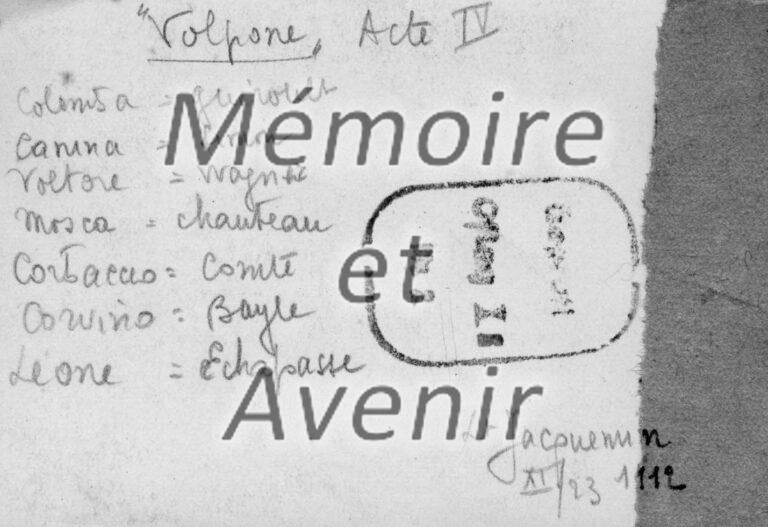 "Volpone, Acte IV
Colomba =
Canina =
Voltore = Wagner
Mosca = Chauteau
Corbaccio = Comte
Corvino = Bayle
Léone = Echapasse
Mémoire
et
Avenir
Oflag II
Jacquemin
XI/23 1112